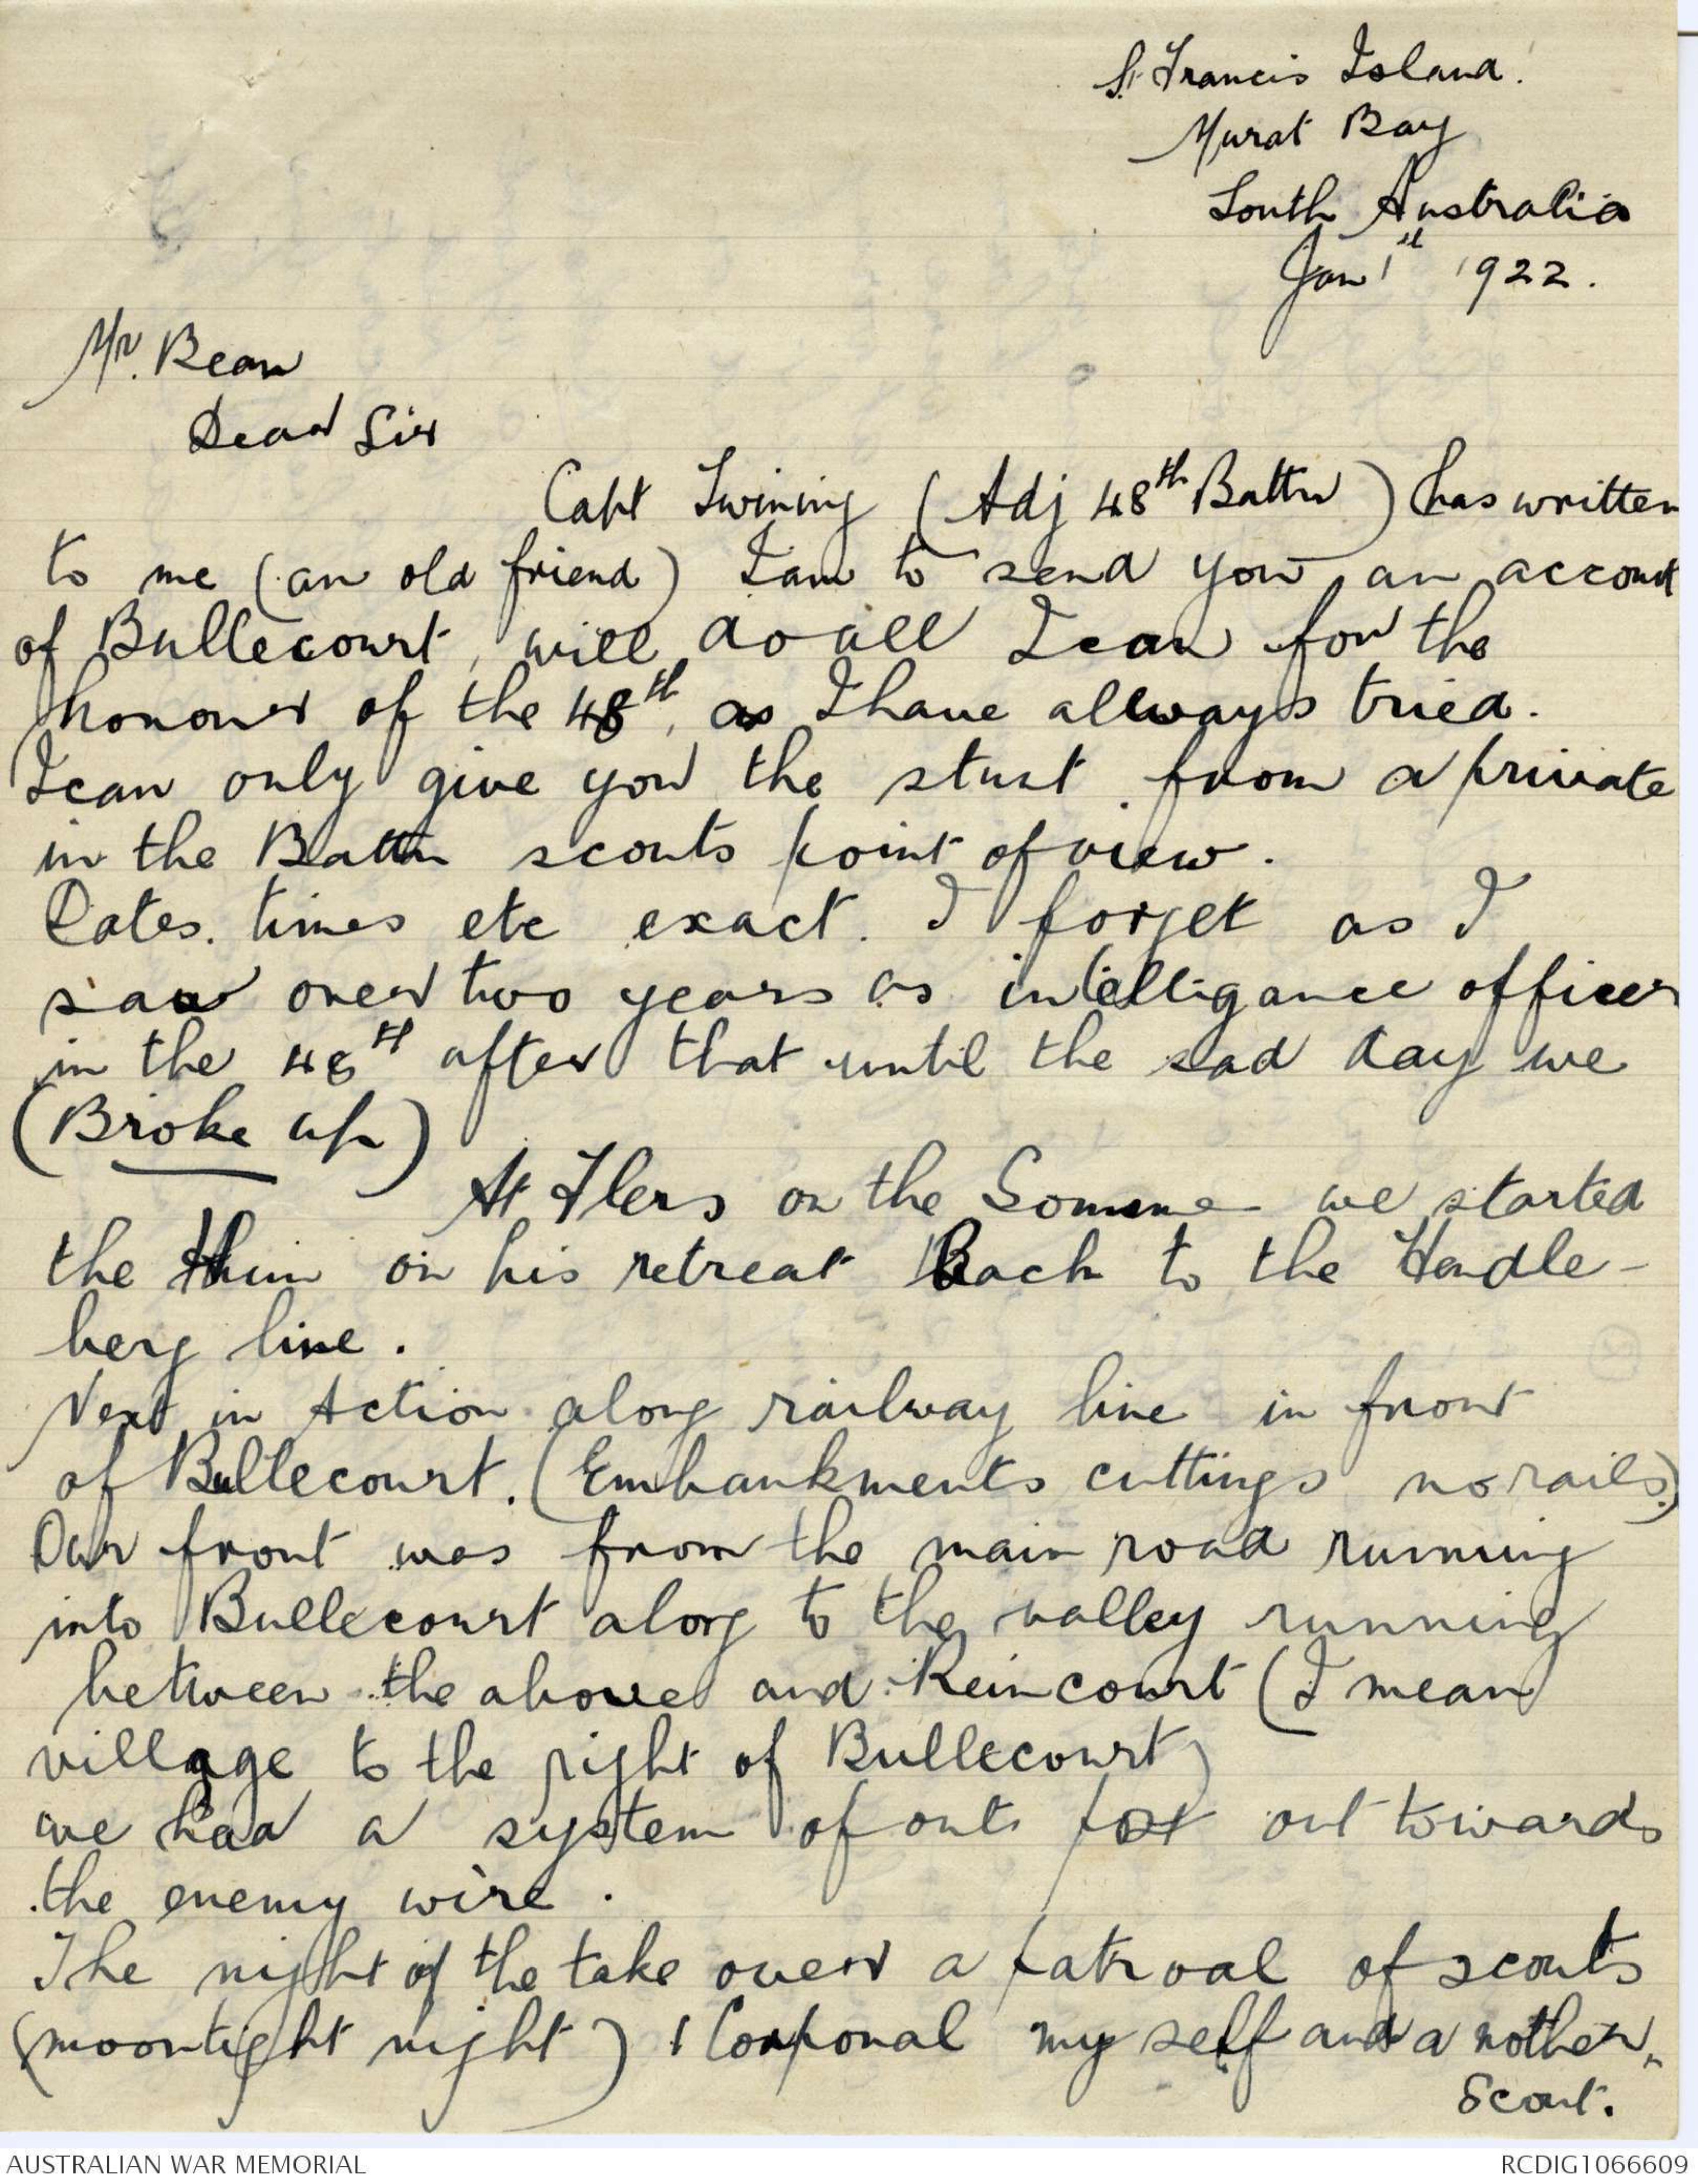 St Francis Island.
Murat Bay
South Australia
Jan 1st 1922.
Mr. Bean
Dear Sir
Capt Twining (Adj 48th Battn) has written
to me (an old friend) I am to send you an account
of Bullecourt, will do all I can for the
honour of the 48th, as I have allways tried.
I can only give you the stust from a private
in the Battn scouts point of view.
Dates. times etc exact. I forget as I
saw over two years as intelligance officer
in the 48th after that until the sad day we
(Broke up)
At Flers on the Somme we started
the Hun on his retreat Back to the Hendle-
berg line.
Next in Action along railway line in front
of Bullecourt. (Embankments cuttings no rails.)
Our front was from the main road running
into Bullecourt along to the valley running
between the above and Reincourt (I mean
village to the right of Bullecourt)
we had a system of outs post out towards
the enemy wire.
The night of the take over a patroal of scouts
(moonlight night) 1 Corporal my self and a nother
Scout.
AUSTRALIAN WAR MEMORIAL
RCDIG1066609